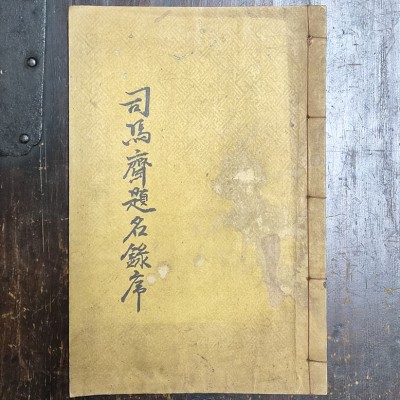 司馬齊題名錄序